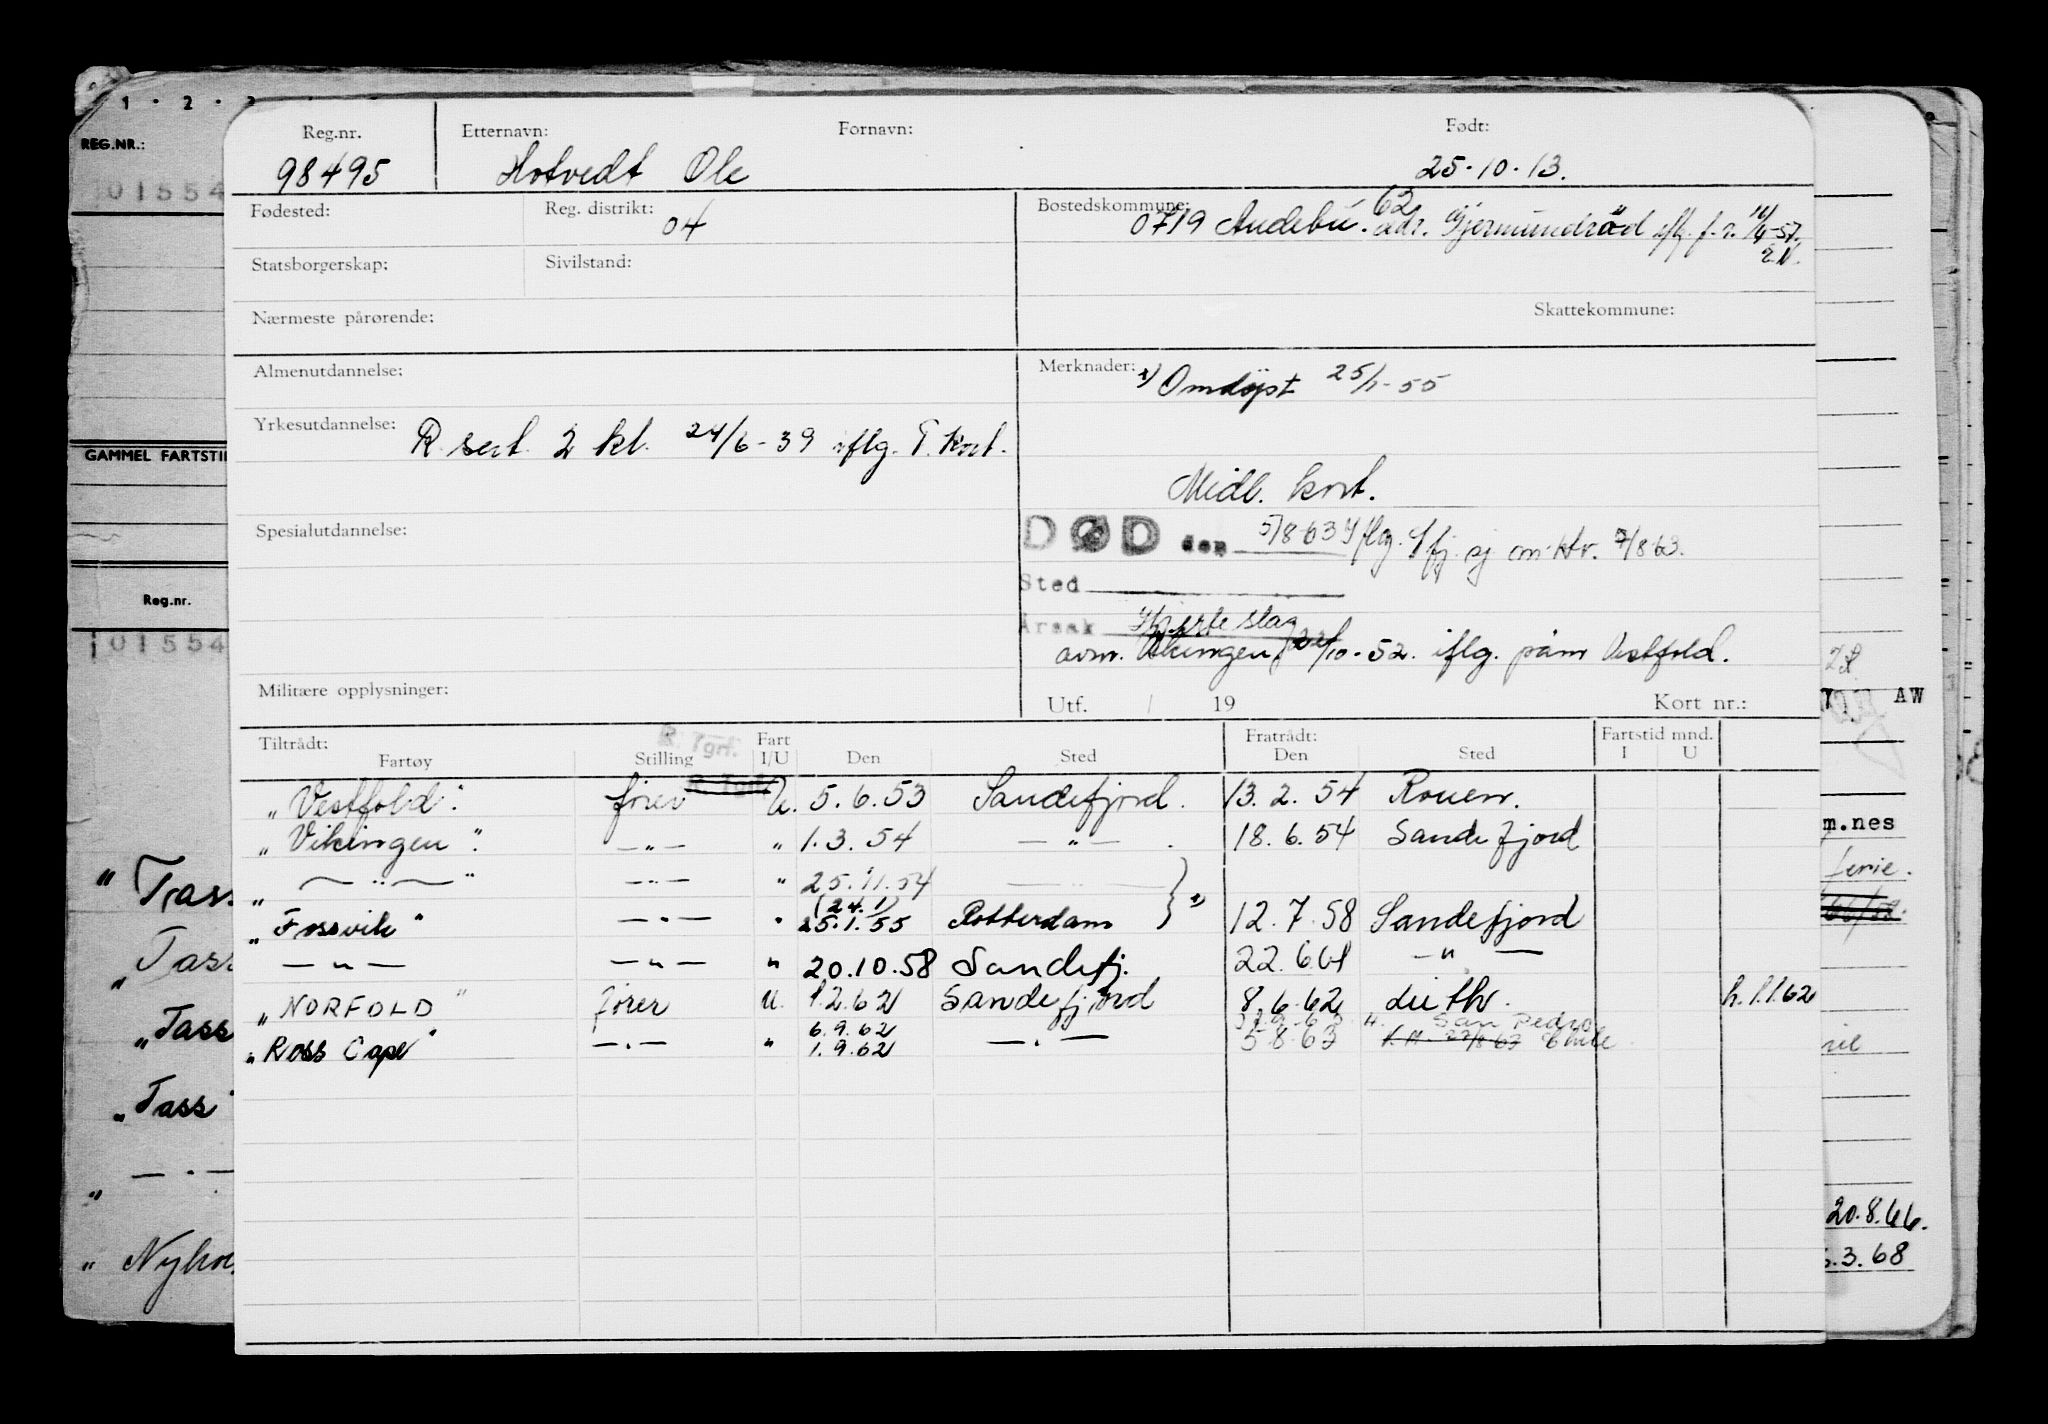 1 · 2 ·
REG.NR.:
01554
GAMMEL FARTSTI
Reg.nr.
01554
Reg.nr. Etternavn: Fornavn: Født:
98495 Hotvedt Ole 25.10.13.
Fødested: Reg. distrikt: 04 Bostedskommune: 62
0719 Andebu. adr. Gjermundröd iflg. f.r. 11/4-57.
E.N.
Statsborgerskap: Sivilstand:
Nærmeste pårørende: Skattekommune:
Almenutdannelse: Merknader: 1) Omdøpt 25/1-55
Yrkesutdannelse: R. sert. 2 kl. 24/6-39 iflg. T. kort.
Midl. kort.
Spesialutdannelse: DØD den 5/8 63 Iflg. Sfj. sj. m. ktr. 7/8 63.
Sted
Årsak Hjerteslag
avm. Vikingen 22/10-52. iflg. påm Vestfold.
Militære opplysninger: Utf. / 19 Kort nr.:
Tiltrådt: R. Tgrf. Fart Fratrådt: Fartstid mnd.
Fartøy Stilling I/U Den Sted Den Sted I U
„Vestfold". fører U. 5.6.53 Sandefjord. 13.2.54 Rouen.
„Vikingen". — " — " 1.3.54 — " — . 18.6.54 Sandefjord
„ — " — " — " — " 25.11.54 — " —
(24.1)
„Fossvik" — " — " 25.1.55 Rotterdam } 1) 12.7.58 Sandefjord
— " — — " — " 20.10.58 Sandefj. 22.6.61 — " —
„NORFOLD" fører U. 1.2.62 Sandefjord 8.6.62 dithr. h. 1.1.62
6.9.62 San Pedro
„Ross Cape" — " — " 1.9.62 — " — 5.8.63 Chile
"Tass
„Tass
„Tass
„Tass
— · —
„
„ Nyho
AW
m.nes
ferie.
20.8.66.
.3.68